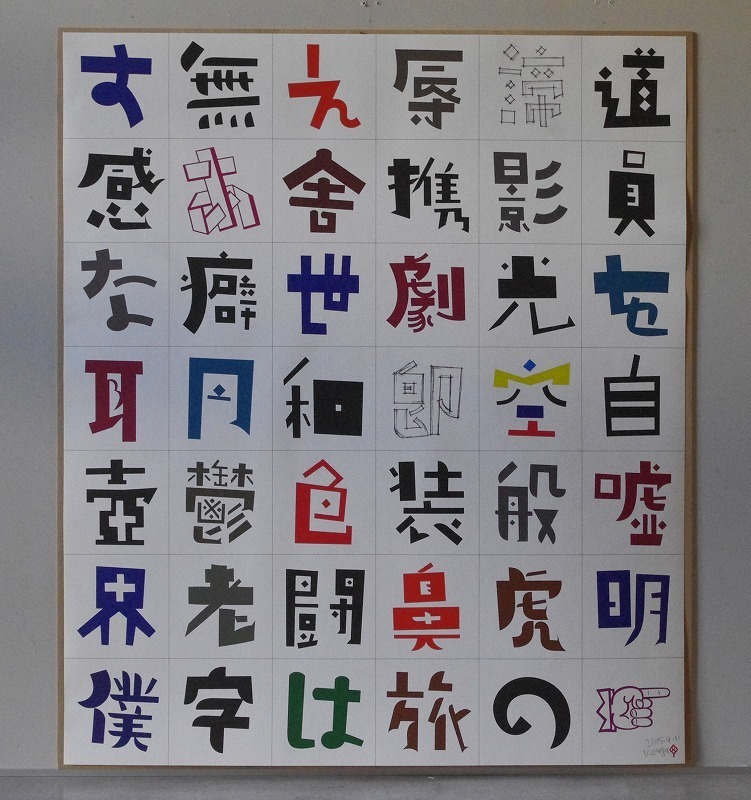 す無え辱諦道
感お舎携影員
な癖世劇光を
耳和空自
壺鬱色装般嘘
界老闘鼻虎明
僕字は旅の